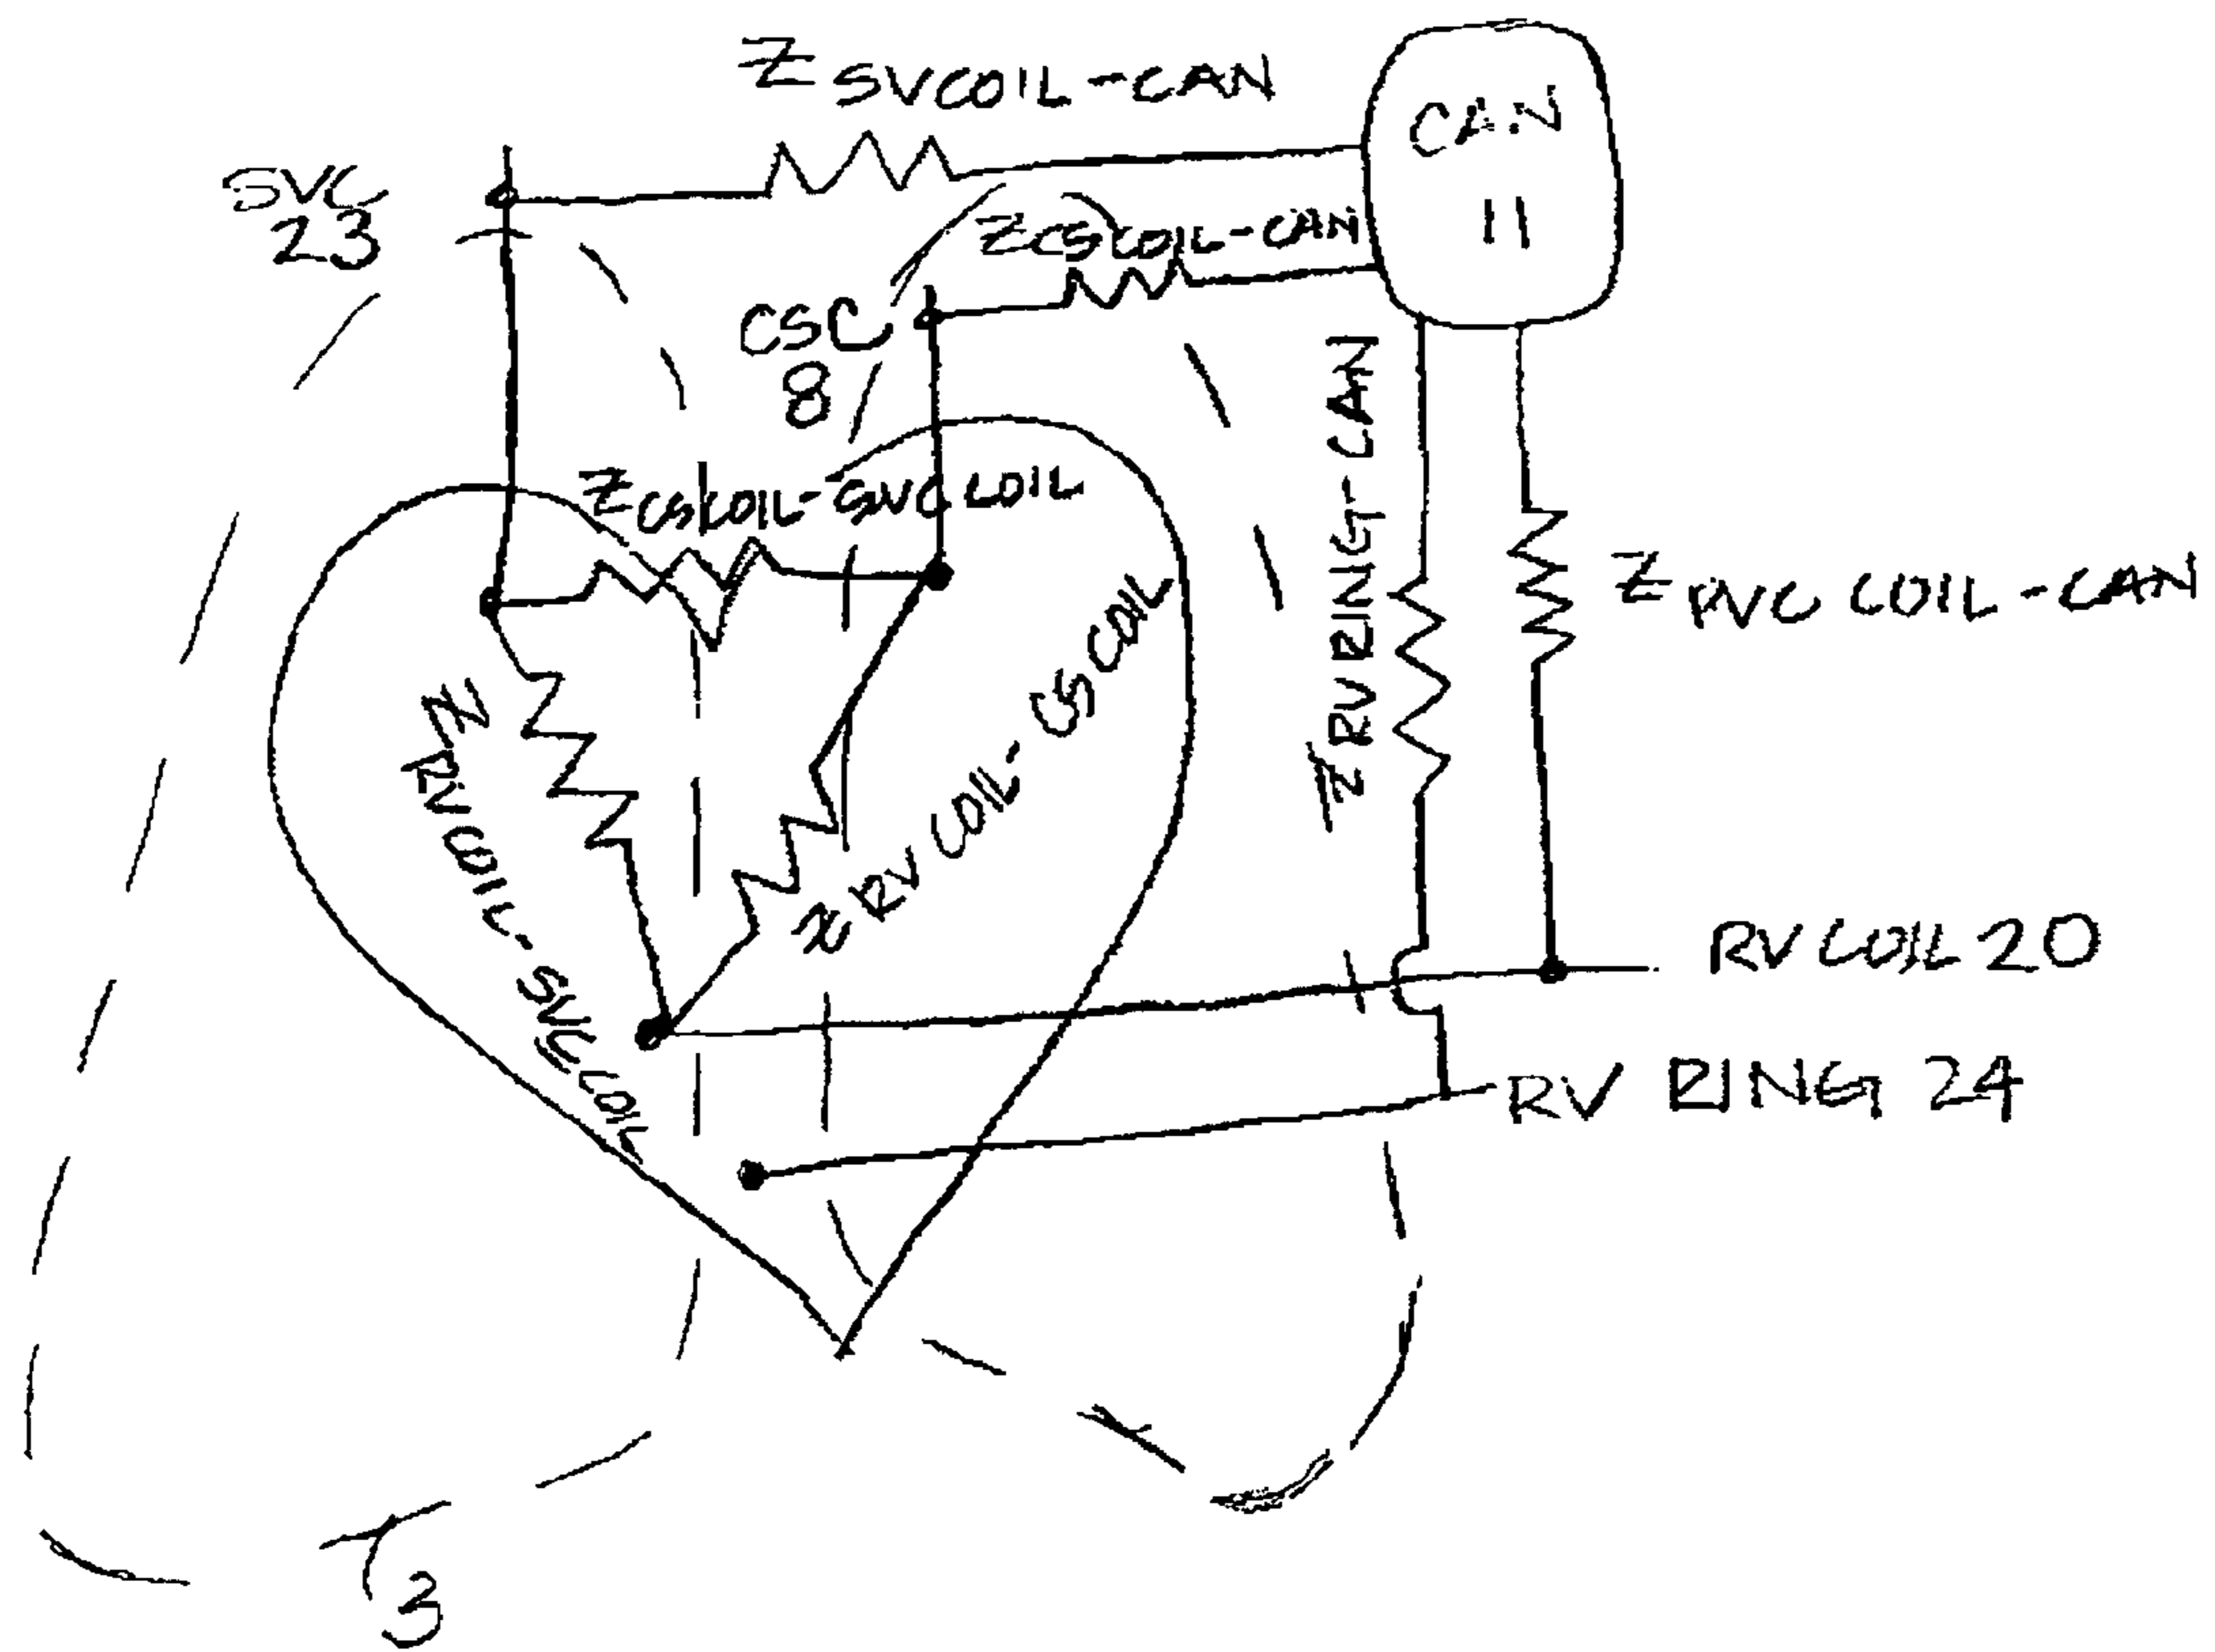 Z SVCOIL-CAN
CAN
11
SVC
23
Z CSCOIL-CAN
CSC
8
Z CSCOIL-SVC COIL
Z RV RING-CAN
Z RVC COIL-CAN
Z RV COIL-SVC COIL
Z RV COIL-CS COIL
RV COIL 20
RV RING 24
3